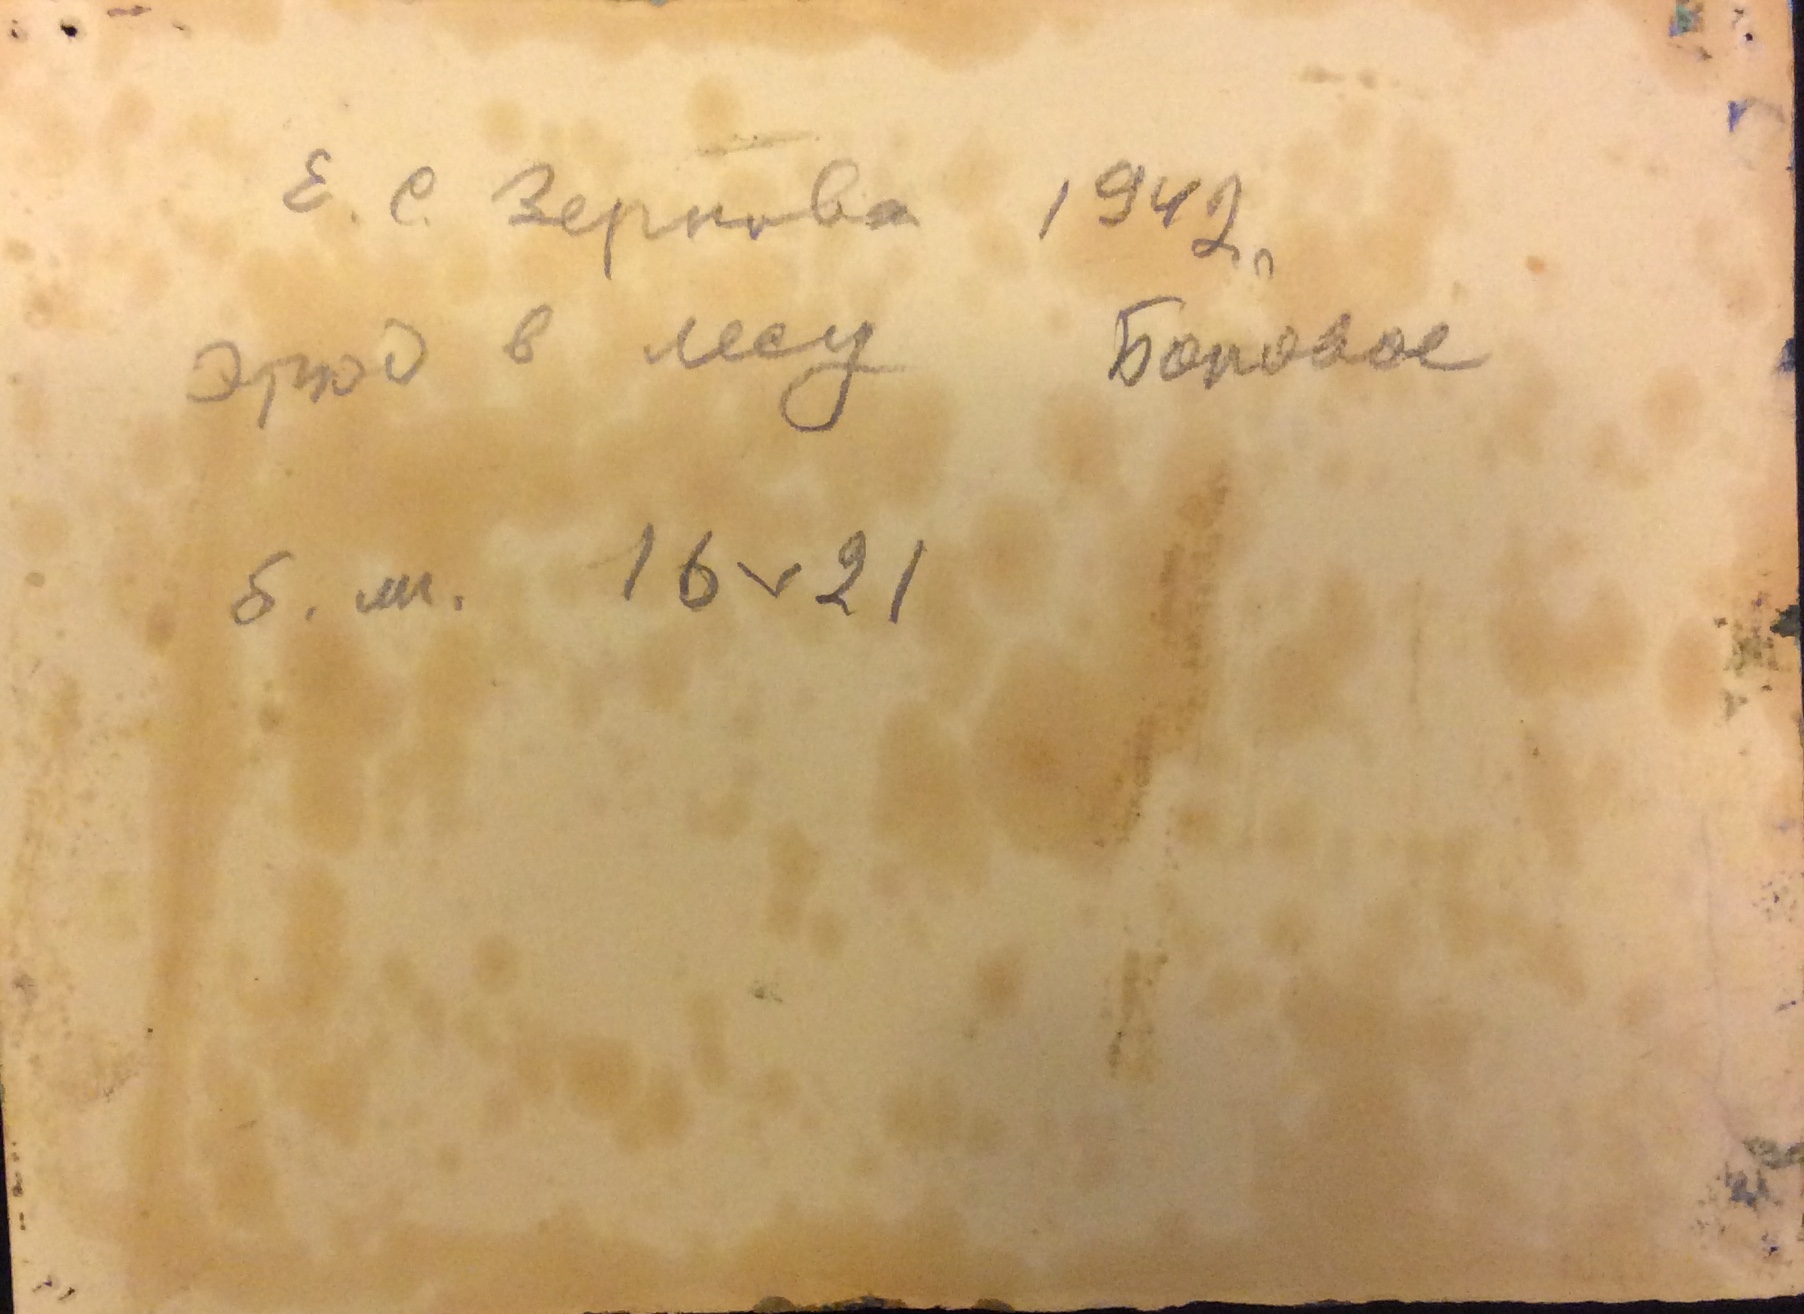 Е. С. Зернова 1942 г.
этюд в лесу Боровое
б. м. 16 x 21